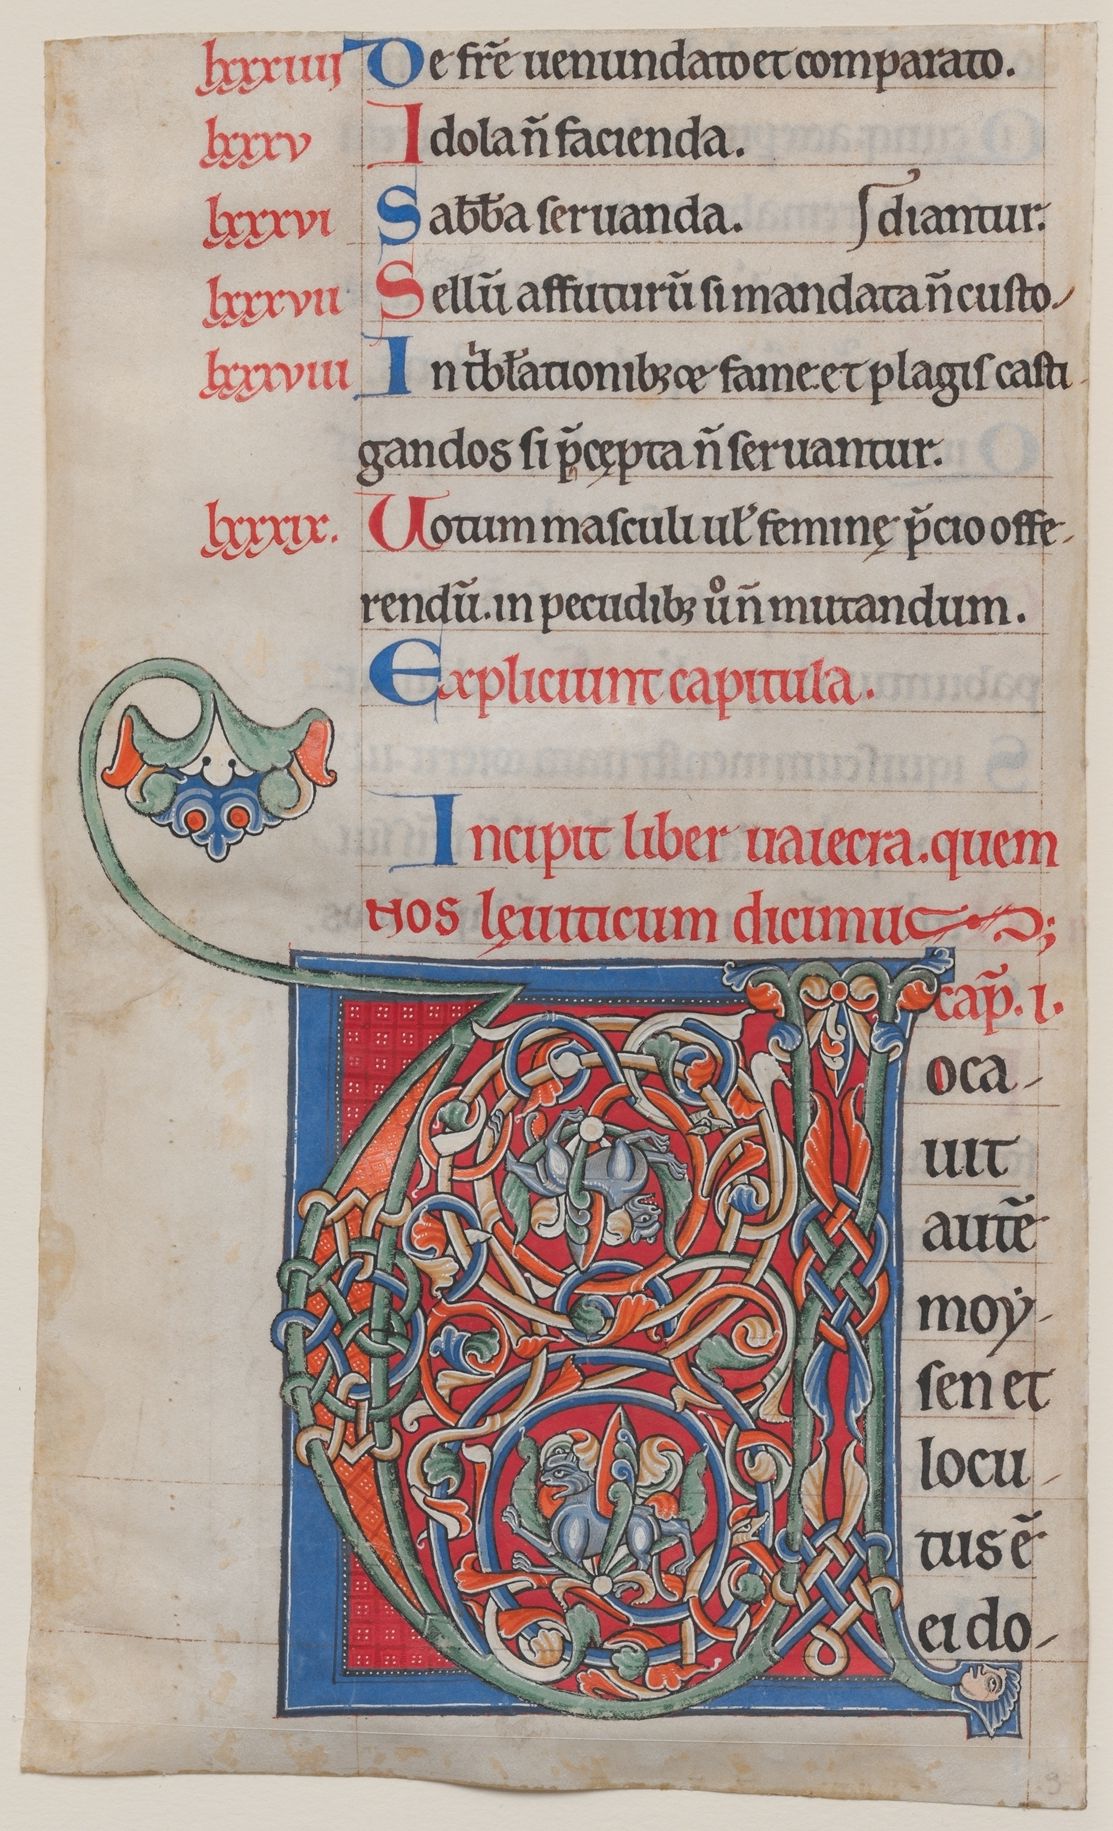 lxxxiiij De fr̄e uenundato et comparato.
lxxxv Idola n̄ facienda.
lxxxvi Sab̄b̄a seruanda. ʃdiantur.
lxxxvii Bellū affuturū si mandata n̄ custo-
lxxxviii In t̾bƚationibꝫ & fame et plagis casti-
gandos si p̄cępta n̄ seruantur.
lxxxix. Uotum masculi uƚ feminę p̄cio offe-
rendū. in pecudibꝫ uͦ n̄ mutandum.
Expliciunt capitula.
Incipit liber uaiecra. quem
nos lęuiticum dicimus;
cap̄. i.
Uoca-
uit
autē
moẏ-
sen et
locu-
tus ē
ei do-